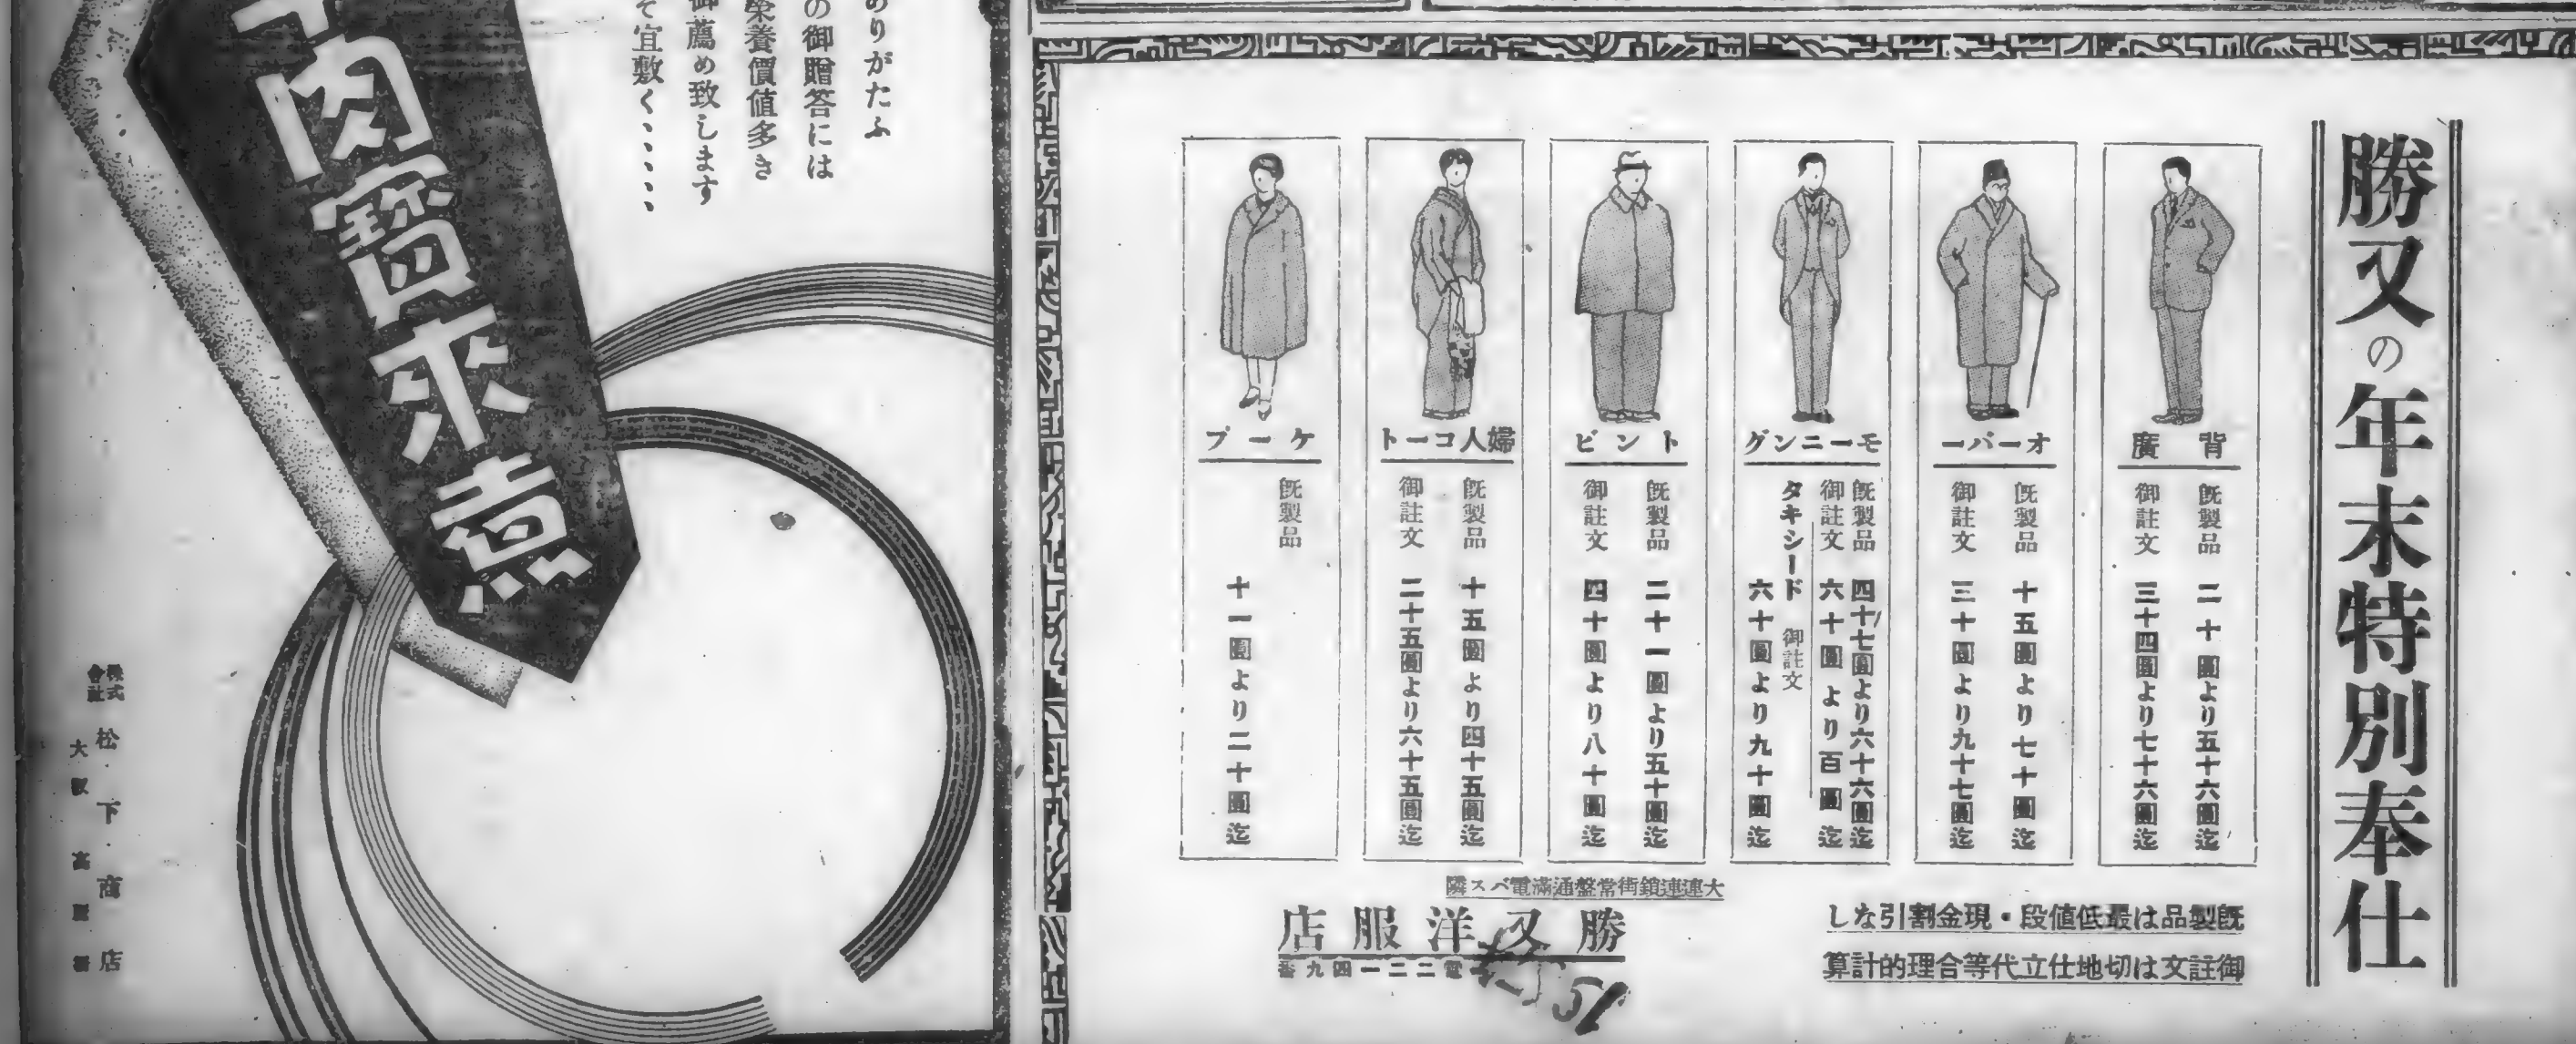 勝又の年末特別奉仕
背廣
既製品 二十圓より五十六圓迄
御註文 三十四圓より七十六圓迄
オーバー
既製品 十五圓より七十圓迄
御註文 三十圓より九十七圓迄
モーニング
既製品 四十七圓より六十六圓迄
御註文 六十圓より百圓迄
タキシード 御註文
六十圓より九十圓迄
トンビ
既製品 二十一圓より五十圓迄
御註文 四十圓より八十圓迄
婦人コート
既製品 十五圓より四十五圓迄
御註文 二十五圓より六十五圓迄
ケープ
既製品
十一圓より二十圓迄
既製品は最低値段・現金割引なし
御註文は切地仕立代等合理的計算
大連連鎖街常盤通滿電バス隣
勝又洋服店
電二二一四九番
ありがたふ
の御贈答には
榮養價値多き
御薦め致します
て宜敷く、、、、
肉寶來煮
株式會社 松下商店
大阪 高麗橋